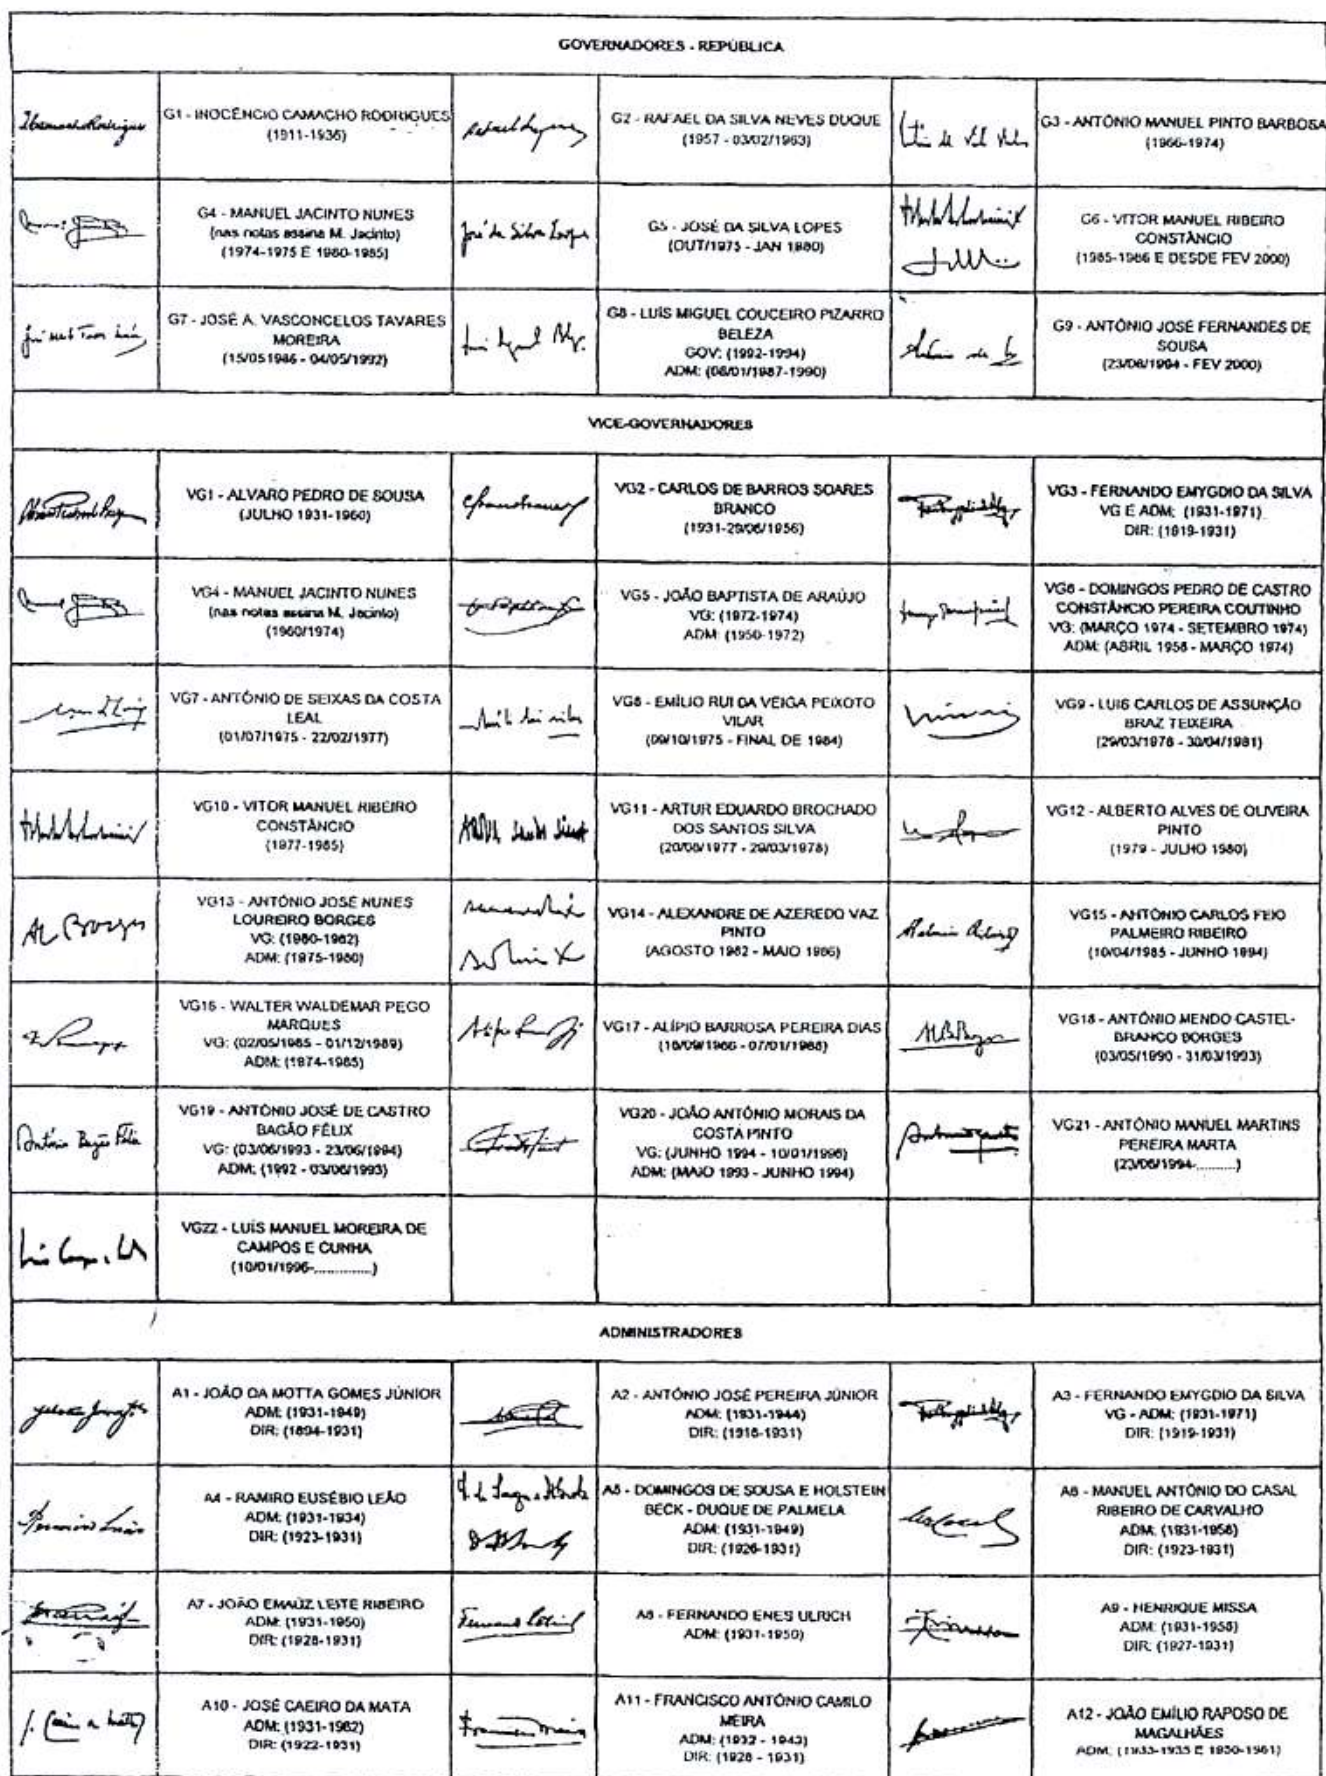 GOVERNADORES - REPÚBLICA
G1 - INOCÊNCIO CAMACHO RODRIGUES
(1911-1936)
G2 - RAFAEL DA SILVA NEVES DUQUE
(1957 - 03/02/1963)
G3 - ANTÓNIO MANUEL PINTO BARBOSA
(1966-1974)
G4 - MANUEL JACINTO NUNES
(nas notas assina M. Jacinto)
(1974-1975 E 1980-1985)
José da Silva Lopes
G5 - JOSÉ DA SILVA LOPES
(OUT/1975 - JAN 1980)
G6 - VITOR MANUEL RIBEIRO
CONSTÂNCIO
(1985-1986 E DESDE FEV 2000)
G7 - JOSÉ A. VASCONCELOS TAVARES
MOREIRA
(15/051986 - 04/05/1992)
G8 - LUÍS MIGUEL COUCEIRO PIZARRO
BELEZA
GOV: (1992-1994)
ADM: (08/01/1987-1990)
G9 - ANTÓNIO JOSÉ FERNANDES DE
SOUSA
(23/06/1994 - FEV 2000)
VICE-GOVERNADORES
VG1 - ALVARO PEDRO DE SOUSA
(JULHO 1931-1960)
VG2 - CARLOS DE BARROS SOARES
BRANCO
(1931-29/06/1956)
VG3 - FERNANDO EMYGDIO DA SILVA
VG E ADM: (1931-1971)
DIR: (1919-1931)
VG4 - MANUEL JACINTO NUNES
(nas notas assina M. Jacinto)
(1960/1974)
VG5 - JOÃO BAPTISTA DE ARAÚJO
VG: (1972-1974)
ADM: (1950-1972)
VG6 - DOMINGOS PEDRO DE CASTRO
CONSTÂNCIO PEREIRA COUTINHO
VG: (MARÇO 1974 - SETEMBRO 1974)
ADM: (ABRIL 1958 - MARÇO 1974)
VG7 - ANTÓNIO DE SEIXAS DA COSTA
LEAL
(01/07/1975 - 22/02/1977)
VG8 - EMÍLIO RUI DA VEIGA PEIXOTO
VILAR
(09/10/1975 - FINAL DE 1984)
VG9 - LUIS CARLOS DE ASSUNÇÃO
BRAZ TEIXEIRA
(29/03/1978 - 30/04/1981)
VG10 - VITOR MANUEL RIBEIRO
CONSTÂNCIO
(1977-1985)
VG11 - ARTUR EDUARDO BROCHADO
DOS SANTOS SILVA
(20/06/1977 - 29/03/1978)
VG12 - ALBERTO ALVES DE OLIVEIRA
PINTO
(1979 - JULHO 1980)
VG13 - ANTÓNIO JOSÉ NUNES
LOUREIRO BORGES
VG: (1980-1982)
ADM: (1975-1980)
VG14 - ALEXANDRE DE AZEREDO VAZ
PINTO
(AGOSTO 1982 - MAIO 1986)
VG15 - ANTÓNIO CARLOS FEIO
PALMEIRO RIBEIRO
(10/04/1985 - JUNHO 1994)
VG16 - WALTER WALDEMAR PEGO
MARQUES
VG: (02/05/1985 - 01/12/1989)
ADM: (1974-1985)
VG17 - ALÍPIO BARROSA PEREIRA DIAS
(16/09/1986 - 07/01/1988)
VG18 - ANTÓNIO MENDO CASTEL-
BRANCO BORGES
(03/05/1990 - 31/03/1993)
António Bagão Félix
VG19 - ANTÓNIO JOSÉ DE CASTRO
BAGÃO FÉLIX
VG: (03/06/1993 - 23/06/1994)
ADM: (1992 - 03/06/1993)
VG20 - JOÃO ANTÓNIO MORAIS DA
COSTA PINTO
VG: (JUNHO 1994 - 10/01/1996)
ADM: (MAIO 1993 - JUNHO 1994)
VG21 - ANTÓNIO MANUEL MARTINS
PEREIRA MARTA
(23/06/1994-..........)
VG22 - LUÍS MANUEL MOREIRA DE
CAMPOS E CUNHA
(10/01/1996-..............)
ADMINISTRADORES
A1 - JOÃO DA MOTTA GOMES JÚNIOR
ADM: (1931-1949)
DIR: (1894-1931)
A2 - ANTÓNIO JOSÉ PEREIRA JÚNIOR
ADM: (1931-1944)
DIR: (1918-1931)
A3 - FERNANDO EMYGDIO DA SILVA
VG - ADM: (1931-1971)
DIR: (1919-1931)
A4 - RAMIRO EUSÉBIO LEÃO
ADM: (1931-1934)
DIR: (1923-1931)
A5 - DOMINGOS DE SOUSA E HOLSTEIN
BECK - DUQUE DE PALMELA
ADM: (1931-1949)
DIR: (1926-1931)
A6 - MANUEL ANTÓNIO DO CASAL
RIBEIRO DE CARVALHO
ADM: (1931-1958)
DIR: (1923-1931)
A7 - JOÃO EMAÚZ LEITE RIBEIRO
ADM: (1931-1950)
DIR: (1928-1931)
A8 - FERNANDO ENES ULRICH
ADM: (1931-1950)
A9 - HENRIQUE MISSA
ADM: (1931-1958)
DIR: (1927-1931)
A10 - JOSÉ CAEIRO DA MATA
ADM: (1931-1962)
DIR: (1922-1931)
A11 - FRANCISCO ANTÓNIO CAMILO
MEIRA
ADM: (1932 - 1943)
DIR: (1928 - 1931)
A12 - JOÃO EMÍLIO RAPOSO DE
MAGALHÃES
ADM: (1933-1935 E 1950-1961)